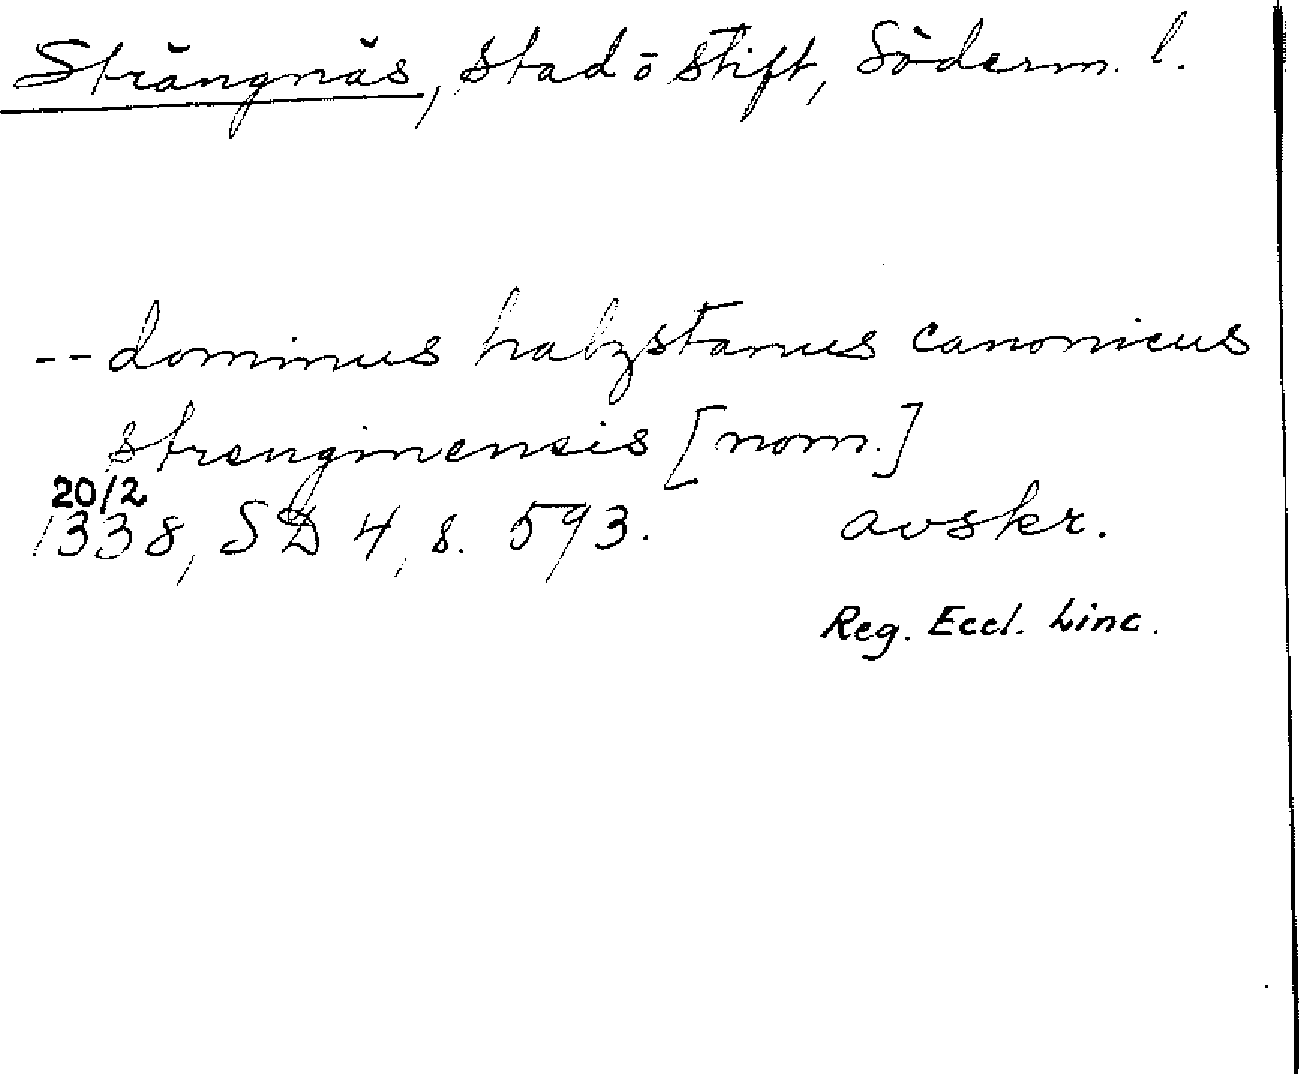 Strängnäs, stad o stift, Söderm. l.
-- dominus halzstanus canonicus
strenginensis [nom.]
20/2
1338, SD 4, s. 593. avskr.
Reg. Eccl. Linc.